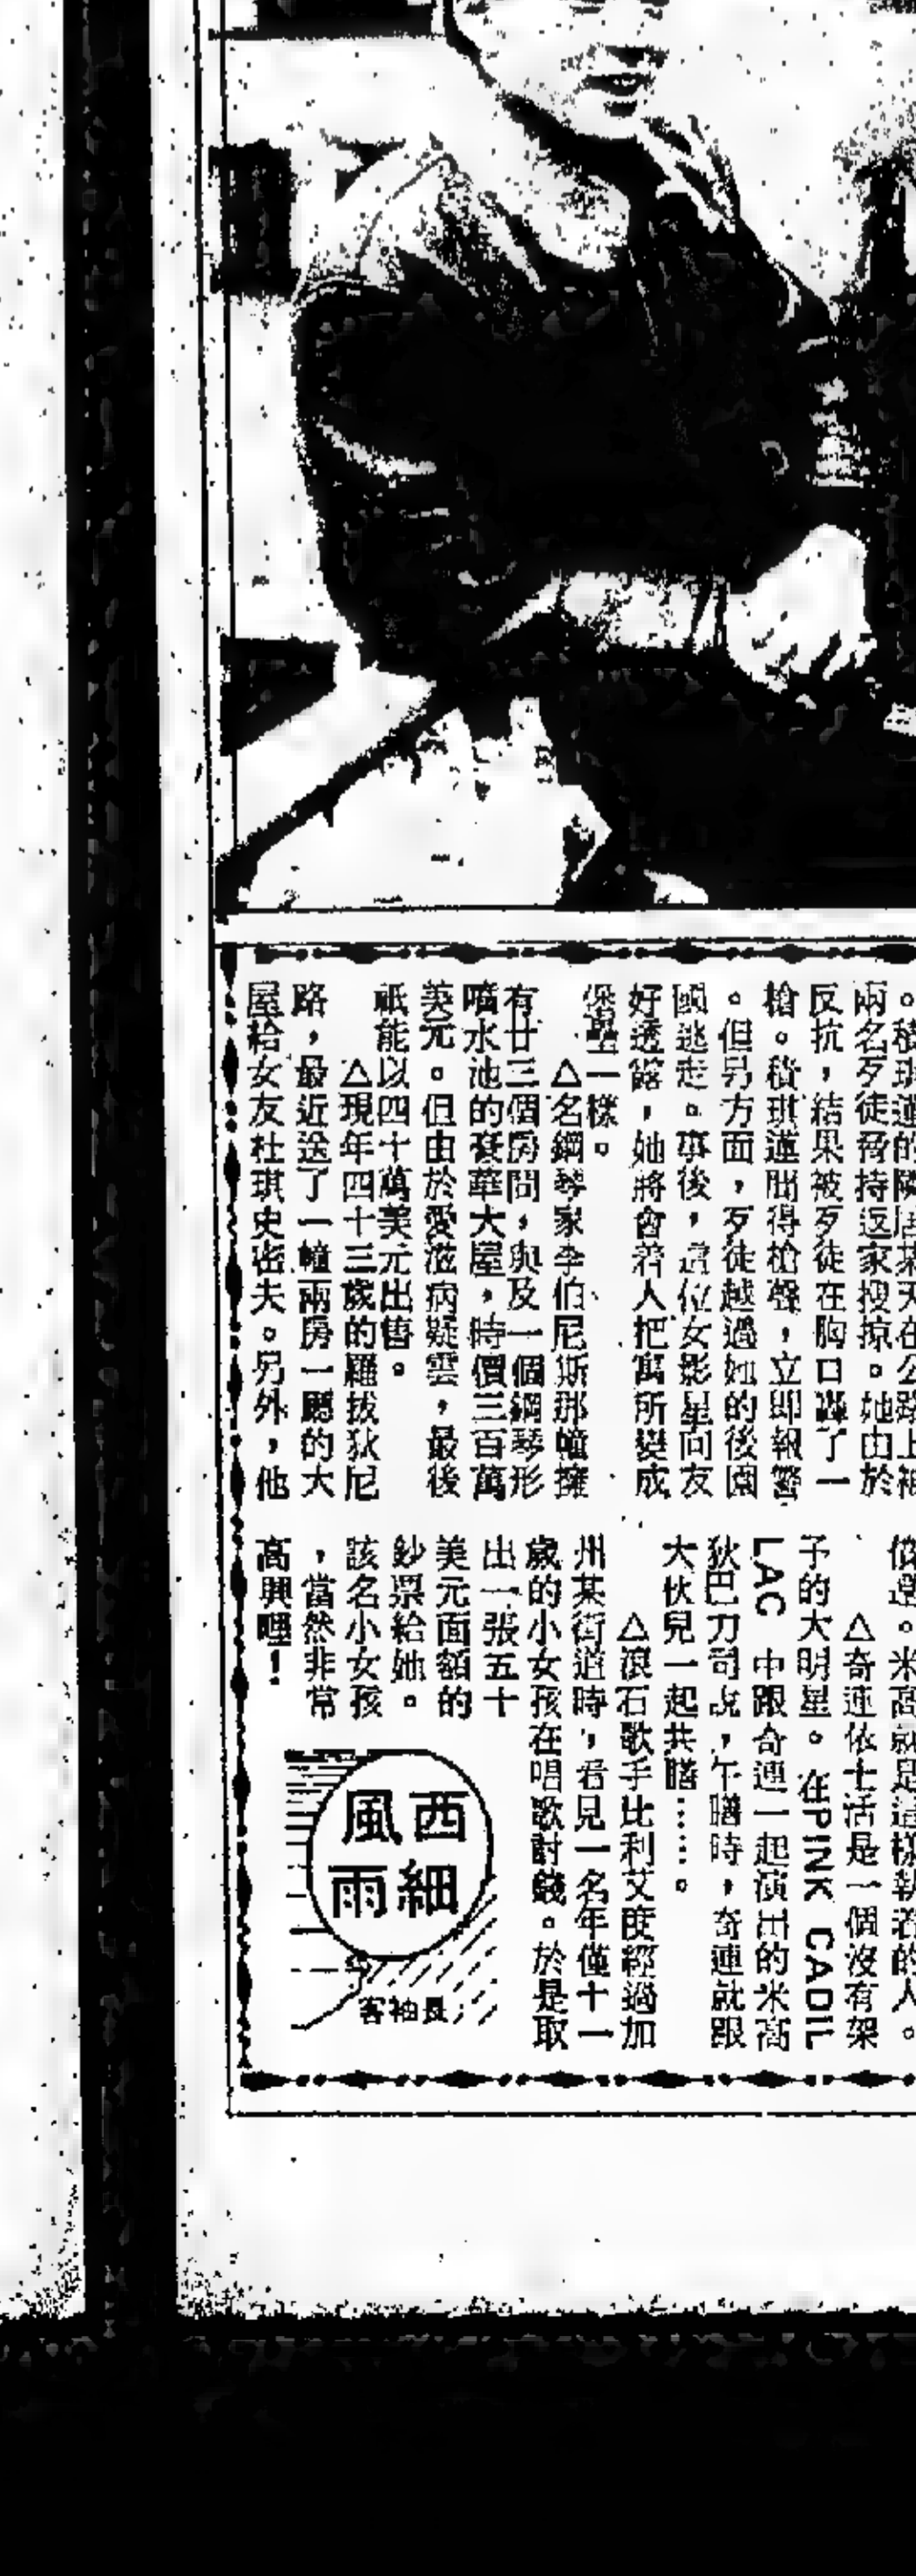 兩名歹徒脅持返家搜掠。她由於
反抗，結果被歹徒在胸口轟了一
槍。積琪蓮聞得槍聲，立即報警
。但另方面，歹徒越過她的後園
逃走。事後，這位女影星向友
好透露，她將會着人把寓所變成
堡壘一樣。
△名鋼琴家李伯尼斯那幢擁
有廿三個房間，與及一個鋼琴形
噴水池的豪華大屋，時價三百萬
美元。但由於愛滋病疑雲，最後
祇能以四十萬美元出售。
△現年四十三歲的羅拔狄尼
路，最近送了一幢兩房一廳的大
屋給女友杜琪史密夫。另外，他
。米高就是這樣執着的人。
△奇連依士活是一個沒有架
子的大明星。在PINK CADIL
LAC 中跟奇連一起演出的米高
狄巴力司說，午膳時，奇連就跟
大伙兒一起共膳……。
△滾石歌手比利艾度經過加
州某街道時，看見一名年僅十一
歲的小女孩在唱歌討錢。於是取
出一張五十
美元面額的
鈔票給她。
該名小女孩
，當然非常
高興哩！
西細
風雨
長袖客